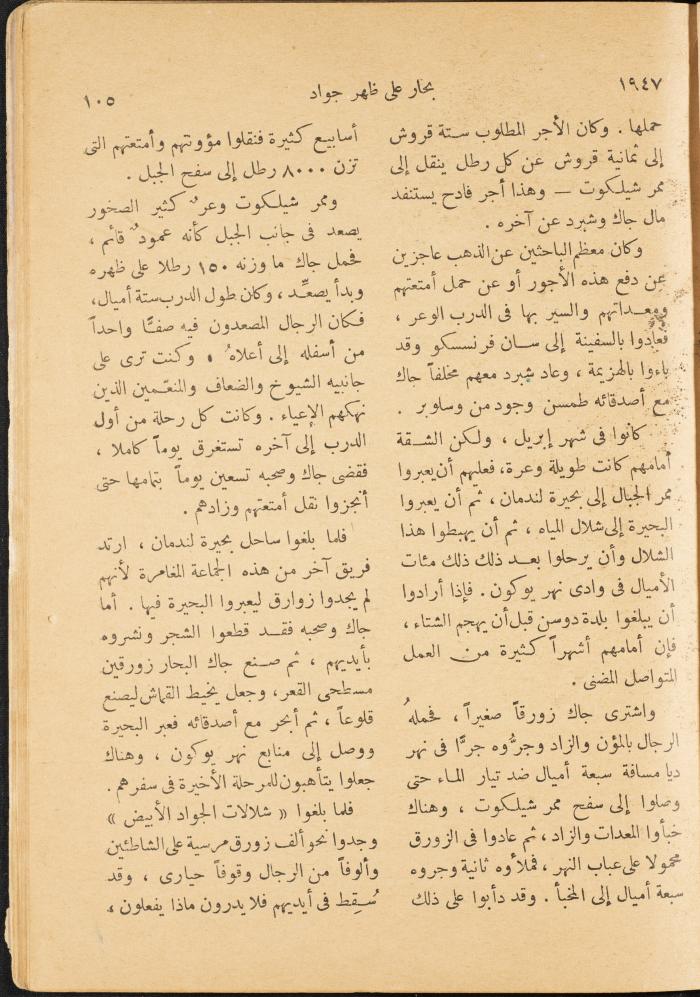 ١٩٤٧
بحار على ظهر جواد
١٠٥
حملها . وكان الأجر المطلوب ستة قروش
إلى ثمانية قروش عن كل رطل ينقل إلى
ممر شيلكوت — وهذا أجر فادح يستنفد
مال جاك وشبرد عن آخره .
وكان معظم الباحثين عن الذهب عاجزين
عن دفع هذه الأجور أو عن حمل أمتعتهم
ومعداتهم والسير بها فى الدرب الوعر ،
فعادوا بالسفينة إلى سان فرنسسكو وقد
باءوا بالهزيمة ، وعاد شبرد معهم مخلفاً جاك
مع أصدقائه طمسن وجودمن وسلوبر .
كانوا فى شهر إبريل ، ولكن الشقة
أمامهم كانت طويلة وعرة، فعليهم أن يعبروا
ممر الجبال إلى بحيرة لندمان ، ثم أن يعبروا
البحيرة إلى شلال المياه ، ثم أن يهبطوا هذا
الشلال وأن يرحلوا بعد ذلك ذلك مئات
الأميال فى وادى نهر يوكون . فإذا أرادوا
أن يبلغوا بلدة دوسن قبل أن يهجم الشتاء ،
فإن أمامهم أشهراً كثيرة من العمل
المتواصل المضنى .
واشترى جاك زورقاً صغيراً ، فحملهُ
الرجال بالمؤن والزاد وجرُّوه جرًّا فى نهر
ديا مسافة سبعة أميال ضد تيار الماء حتى
وصلوا إلى سفح ممر شيلكوت ، وهناك
خبأوا المعدات والزاد ، ثم عادوا فى الزورق
محمولا على عباب النهر ، فملأوه ثانية وجروه
سبعة أميال إلى المخبأ . وقد دأبوا على ذلك
أسابيع كثيرة فنقلوا مؤونتهم وأمتعتهم التى
تزن ٨٠٠٠ رطل إلى سفح الجبل .
وممر شيلكوت وعرٌ كثير الصخور
يصعد فى جانب الجبل كأنه عمودٌ قائم ،
فحمل جاك ما وزنه ١٥٠ رطلا على ظهره
وبدأ يصعِّد ، وكان طول الدرب ستة أميال،
فكان الرجال المصعدون فيه صفًّا واحداً
من أسفله إلى أعلاهُ . وكنت ترى على
جانبيه الشيوخ والضعاف والمنعّمين الذين
نهكهم الإعياء . وكانت كل رحلة من أول
الدرب إلى آخره تستغرق يوماً كاملا ،
فقضى جاك وصحبه تسعين يوماً بتمامها حتى
أنجزوا نقل أمتعتهم وزادهم .
فلما بلغوا ساحل بحيرة لندمان ، ارتد
فريق آخر من هذه الجماعة المغامرة لأنهم
لم يجدوا زوارق ليعبروا البحيرة فيها . أما
جاك وصحبه فقد قطعوا الشجر ونشروه
بأيديهم ، ثم صنع جاك البحار زورقين
مسطحى القعر، وجعل يخيط القماش ليصنع
قلوعاً ، ثم أبحر مع أصدقائه فعبر البحيرة
ووصل إلى منابع نهر يوكون ، وهناك
جعلوا يتأهبون للمرحلة الأخيرة فى سفرهم .
فلما بلغوا « شلالات الجواد الأبيض »
وجدوا نحو ألف زورق مرسية على الشاطئين
وألوفاً من الرجال وقوفاً حيارى ، وقد
سُقِط فى أيديهم فلا يدرون ماذا يفعلون ،